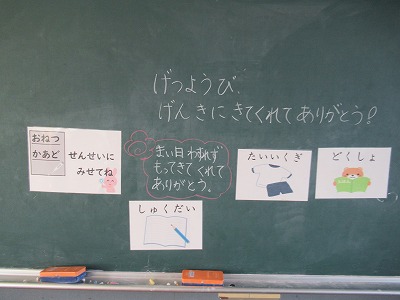 げつようび.
げんきにきてくれてありがとう!
おねつ
かあど
せんせいに
みせてね
まい日わすれず
もってきてくれて
ありがとう。
たいいくぎ
どくしょ
しゅくだい